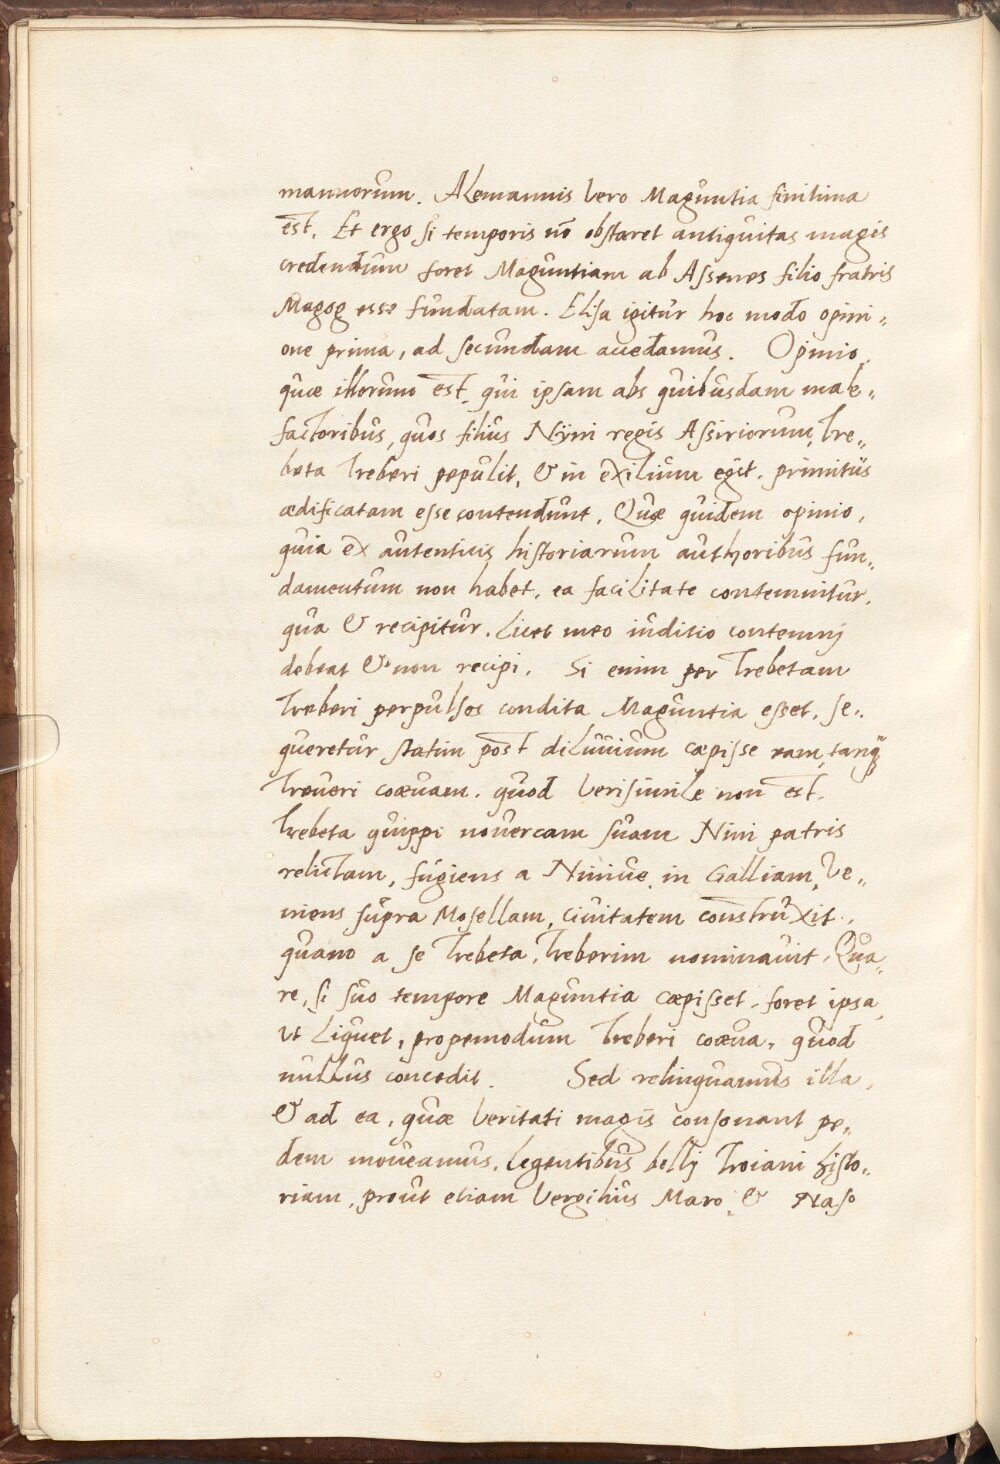 mannorum. Alemannis vero Maguntia finitima
est. Et ergo si temporis nō obstaret antiquitas magis
credendum foret Maguntiam ab Assenes filio fratris
Magog esse fundatam. Elisa igitur hoc modo opini„
one prima, ad secundam accedamus. Opinio,
quæ illorum est, qui ipsam abs quibusdam male„
factoribus, quos filius Nyni regis Assiriorum, Tre„
beta Treberi pepulit, & in exilium egit, primitus
ædificatam esse contendunt. Quæ quidem opinio,
quia ex autenticis historiarum authoribus fun„
damentum non habet, ea facilitate contemnitur,
qua & recipitur. Licet meo iuditio contemnj
debeat & non recipi. Si enim per Trebetam
Treberi perpulsos condita Maguntia esset, se„
queretur statim post diluuium cæpisse eam, tanq̃
Treueri coæuam. quod verisimile non est.
Trebeta quippi nouercam suam Nini patris
relictam, fugiens a Niniue, in Galliam, ve„
niens supra Mosellam, ciuitatem construxit,
quam a se Trebeta, Treberim nominauit. Qua„
re, si suo tempore Maguntia cæpisset, foret ipsa,
ut liquet, propemodum Treberi coæua, quod
nullus concedit. Sed relinquamus illa,
& ad ea, quæ veritati magis consonant pe„
dem moueamus. Legentibus bellj Troiani histo„
riam, prout etiam Vergilius Maro, & Naso